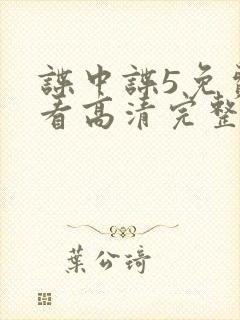 諜中諜5免費
看高清完整
葉公琦